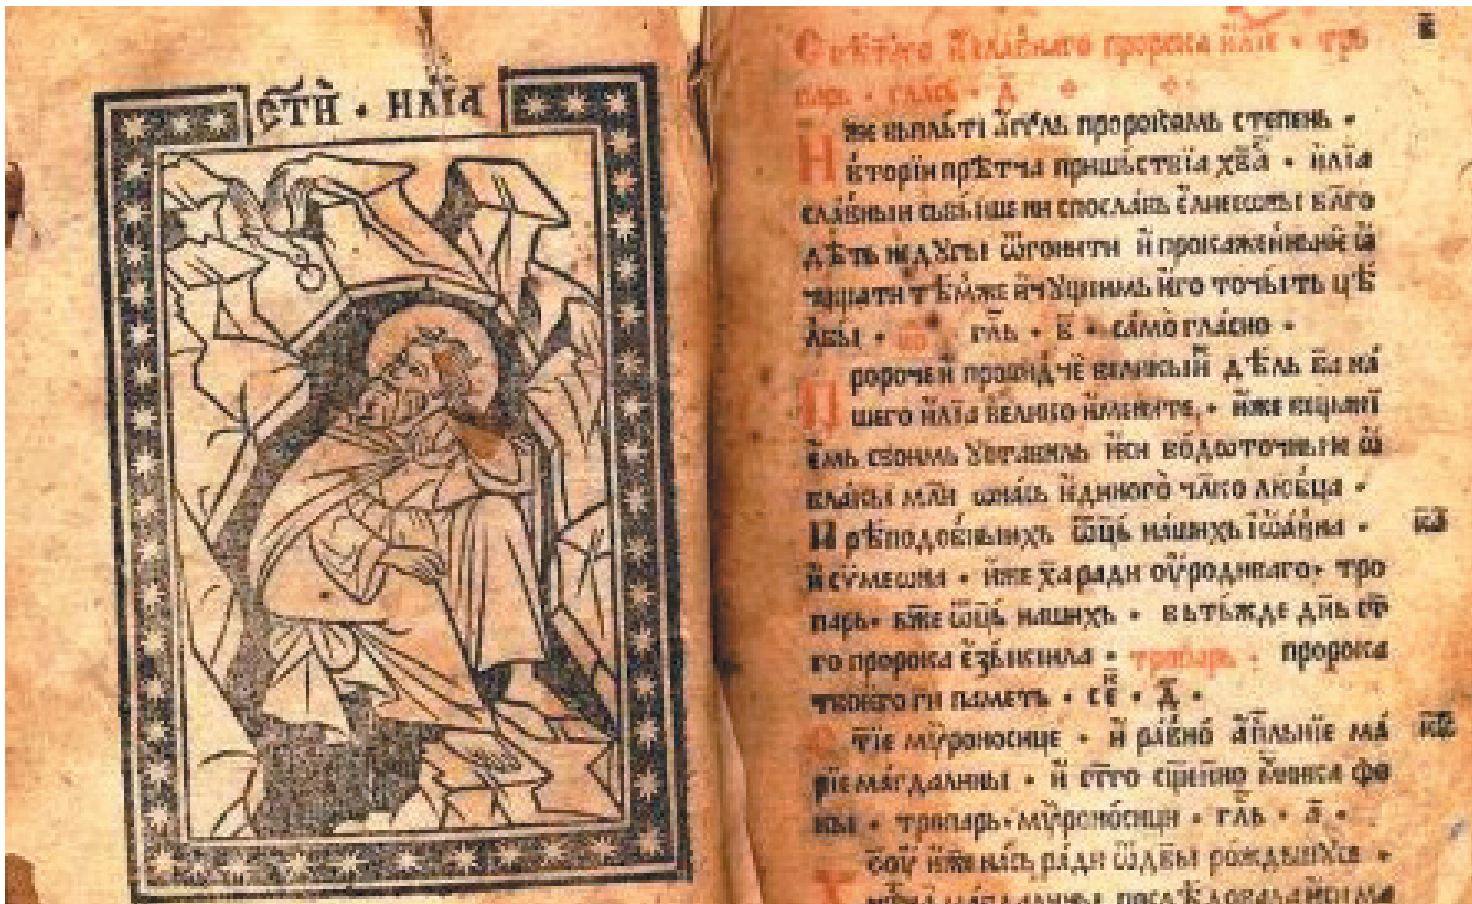 СТ҃Ы · ИЛЇА
С҃вѣтаго И҆сла́внаго пророка и҆лїе · тро
парь · гла́сь · д҃ К҃
И́же вьпльти а҆гг҃ль пророкомь степень ·
вторїи прѣт҃ча пришьствїа х҃ва · и҆лїа
сла́вныи сьви́ше ни спосла́вь є҆лисеѡмы бл҃го
дѣ́ть недугы ѿгонити и҆ прокаженные ѡ
чищати тѣ́мже и҆ чтущиимь и҆го точи́ть цѣ
лбы · гла҃ · в҃ · са́мо гла́сно ·
Пророче и҆ провидче великы́и дѣ́ль б҃а на́
шего и҆лїа велико и҆мените · и҆же вѣщанї
ємь своимь уставиль и҆си водоточные ѡ
блакы мл҃и ѡнась и҆диного̀ чл҃ко люб́ца ·
Прѣподо́бныихь ѿц҃ь нашихь їѡа́нна · к҃а
и҆ сѵмеѡна · и҆же х҃а ради оу҆родиваго · тро
парь · б҃же ѿц҃ь нашихь · вьтьжде дн҃ь ст҃
го пророка є҆зыкиила · тропарь · пророка
твоиго г҃и паметь · се · д҃ ·
С҃тїе мѵроносице · и҆ ра́вно а҆п҃льнїе ма́ к҃в
рїе ма́гдалины · и҆ ст҃го сщ҃енно м҃чника фо
кы · тропарь · мѵроно́сици · гл҃ь · а҃ ·
Х҃соу и҆же на́сь ра́ди ѿдв҃ы рождьшусе ·
ма́гдалины послѣдовала и҆си ма